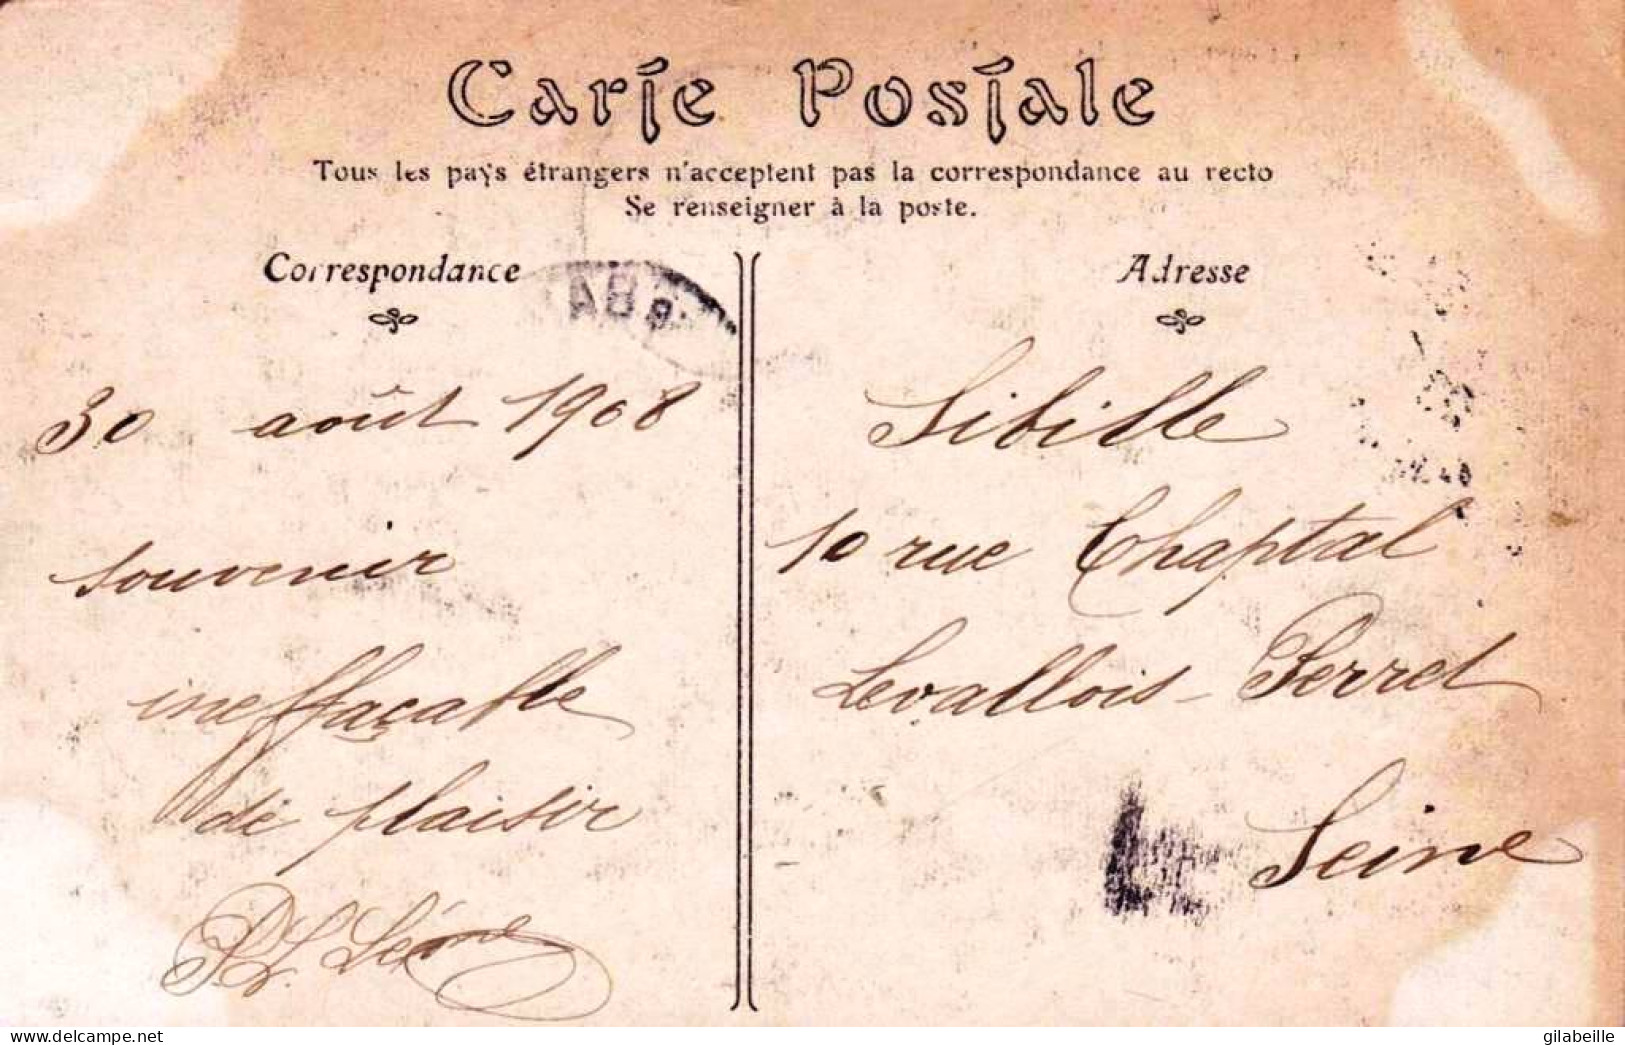 Carte Postale
Tous les pays étrangers n'acceptent pas la correspondance au recto
Se renseigner à la poste.
Correspondance
30 août 1908
souvenir
ineffaçable
de plaisir
Adresse
Sibille
10 rue Chaptal
Levallois-Perret
Seine
delcampe.net
gilabeille